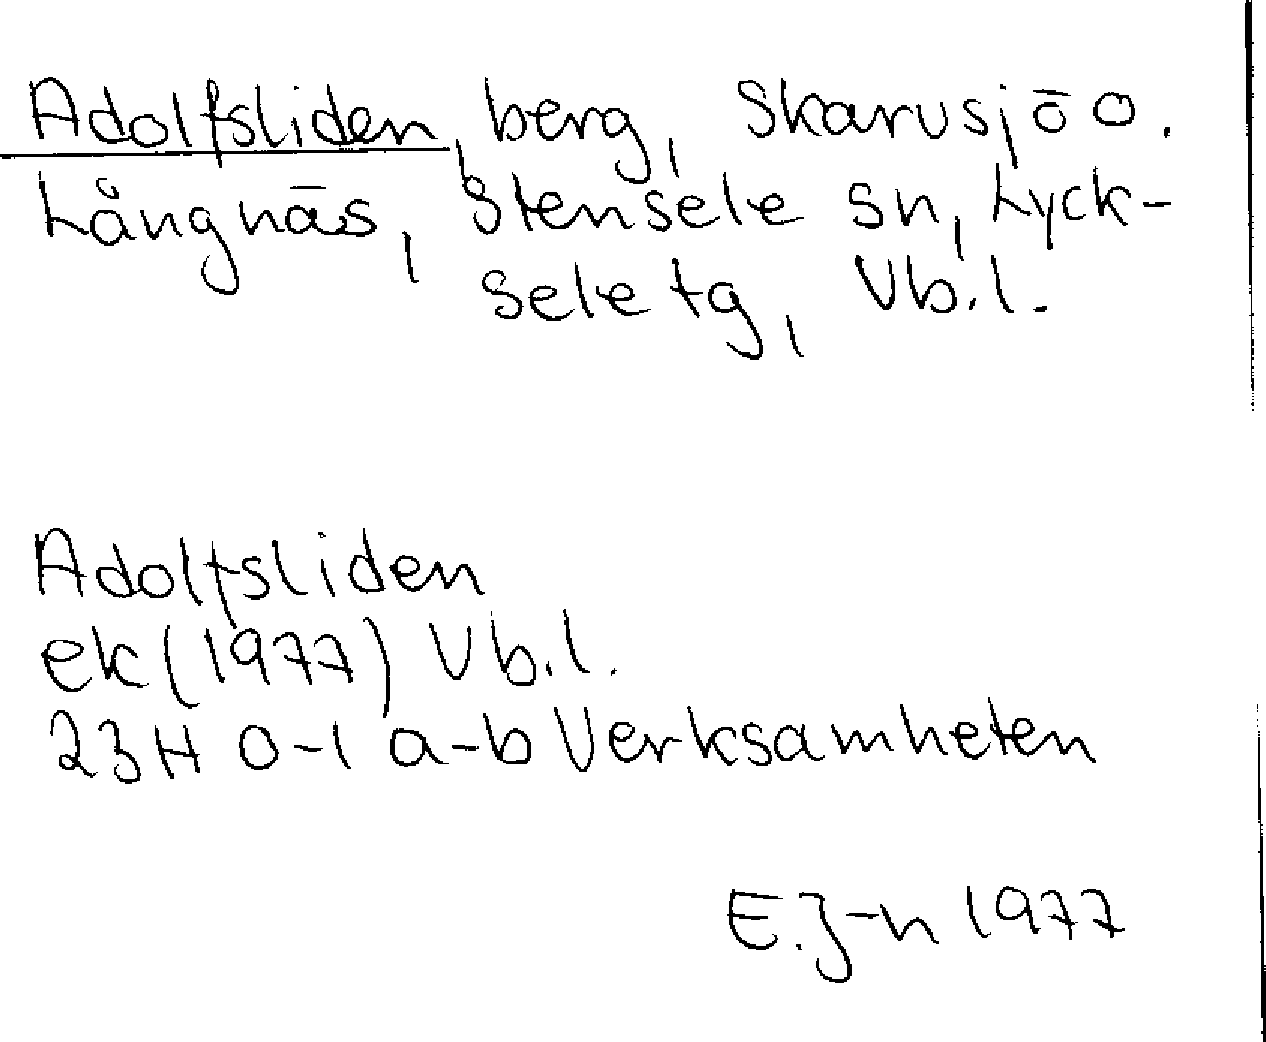 Adolfsliden, berg, Skarvsjö o.
Långnäs, Stensele sn, Lyck-
sele tg, Vb.l.
Adolfsliden
ek (1977) Vb.l.
23H 0-1 a-b Verksamheten
E.J-n 1977